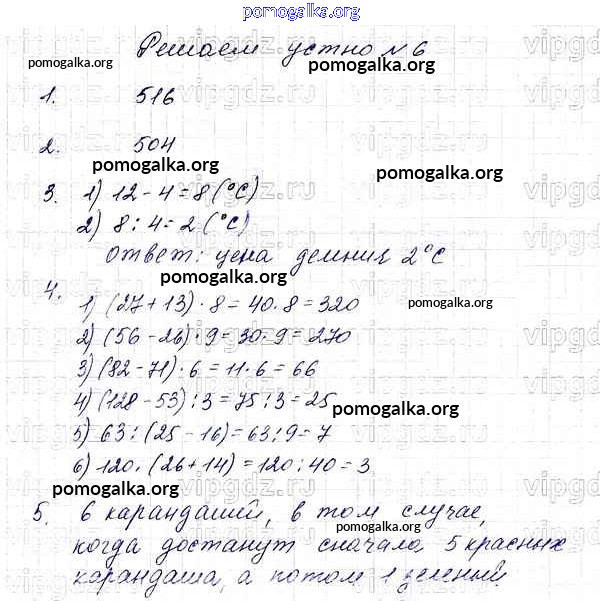 pomogalka.org
Решаем устно №6
pomogalka.org pomogalka.org
1. 516
2. 504
pomogalka.org pomogalka.org
3. 1) 12 - 4 = 8 (°С)
2) 8 : 4 = 2 (°С)
Ответ: цена делния 2°С
pomogalka.org
4. 1) (27 + 13) · 8 = 40 · 8 = 320
pomogalka.org
2) (56 - 26) · 9 = 30 · 9 = 270
3) (82 - 71) · 6 = 11 · 6 = 66
4) (128 - 53) : 3 = 75 : 3 = 25
pomogalka.org
5) 63 : (25 - 16) = 63 : 9 = 7
6) 120 : (26 + 14) = 120 : 40 = 3
pomogalka.org
5. 6 карандашей, в том случае,
pomogalka.org
когда достанут сначала 5 красных
карандаша, а потом 1 зеленый.
pomogalka.org